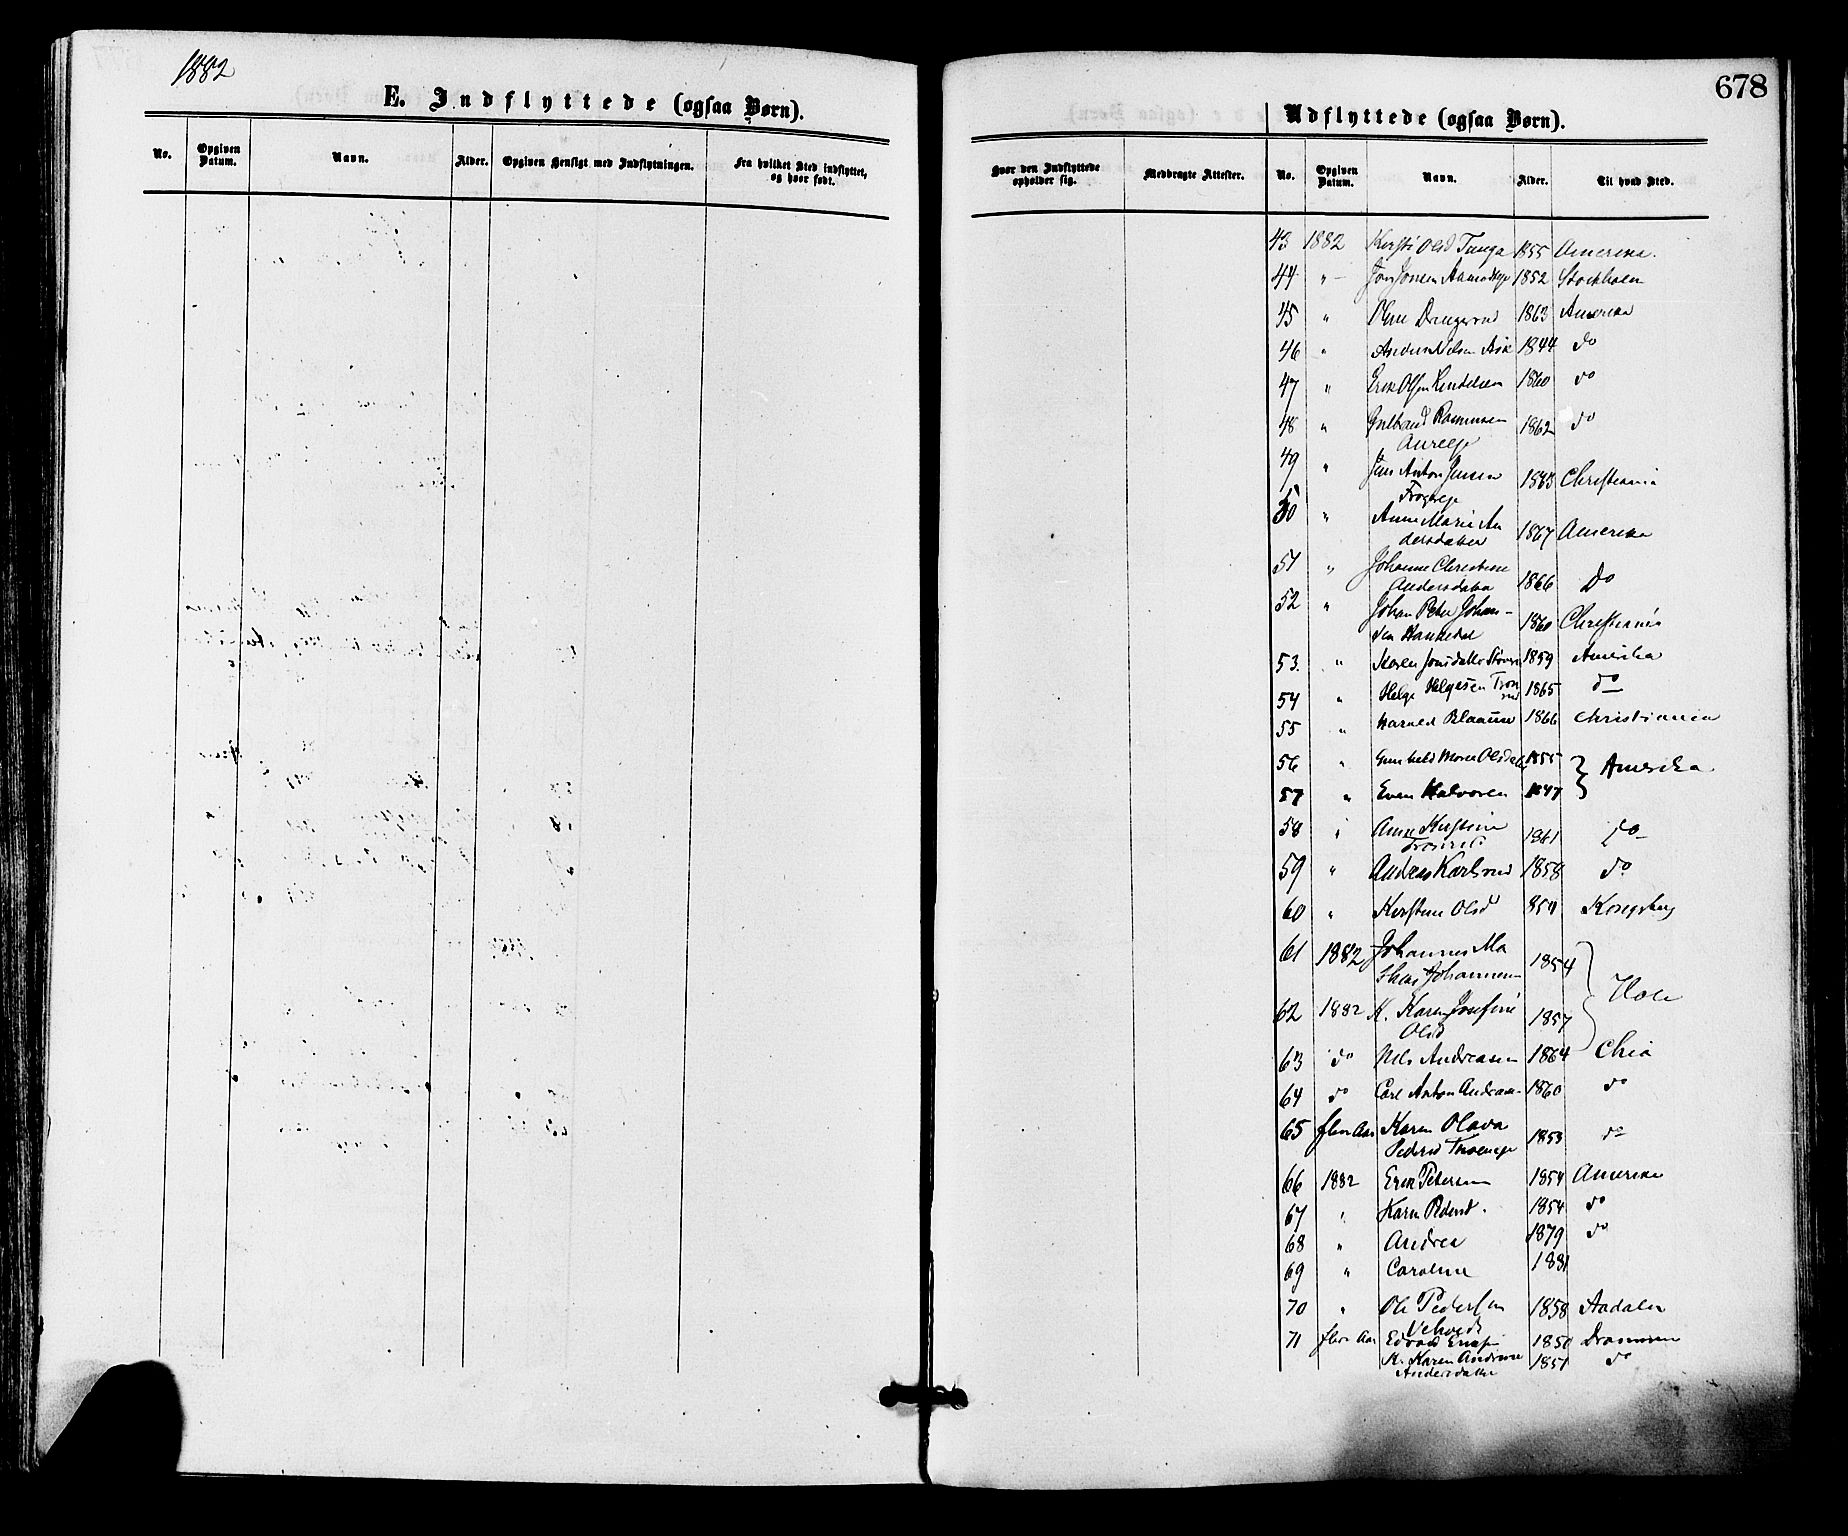 1882
E. Indflyttede (ogsaa Børn).
No. Opgiven Datum. Navn. Alder. Opgiven Hensigt med Indflytningen. Fra hvilket Sted indflyttet, og hvor født.
678
Udflyttede (ogsaa Børn).
Hvor den Indflyttede opholder sig. Medbragte Attester. No. Opgiven Datum. Navn. Alder. Til hvad Sted.
43 1882 Kersti Olsd Tanga 1855 Amerika.
44 " Jon Jonsen 1852 Stockholm
45 " 1863 Amerika
46 " Anders Nilsen Ask 1844 do
47 " Erik Olsen 1860 do
48 " Gulbrand Rasmussen 1862 do
49 " Jens Anton Jensen Christiania
50 " Anne Marie An
dersdatter 1867 Amerika
51 " Johanne Christine
Andersdatter 1866 Do
52 " Johan Peter Johan-
sen 1860 Christiania
53. " Karen Jonsdatter 1859 Amerika
54 " Helge Helgesen 1865 do
55 " Harald 1866 Christiania
56 " Gunhild Marie Olsdatter 1855 } Amerika
57 " Even Halvorsen 1847
58 " Anne Kirstine 1861 do
59 " Andreas Karlsrud 1858 do
60 " Kirstine Olsd Kongsberg
61 1882 Johannes Ma
thias Johannesen 1854 } Hole
62 1882 K. Karen Josefine 1857
Olsd
63 do Nils Andreasen 1864 Chria
64 do Carl Anton Andreas- 1860 do
65 flere Aar Karen Olava
Pedersd 1853 do
66 1882 Erik Petersen 1854 Amerika
67 " Karen Pedersd. 1854 do
68 " Andrea 1879 do
69 " Caroline 1881
70 " Ole Pedersen 1858 Aadalen
71 flere Aar Edvard 1850 Drammen
K. Karen Andrine 1851 do
Andersdatter